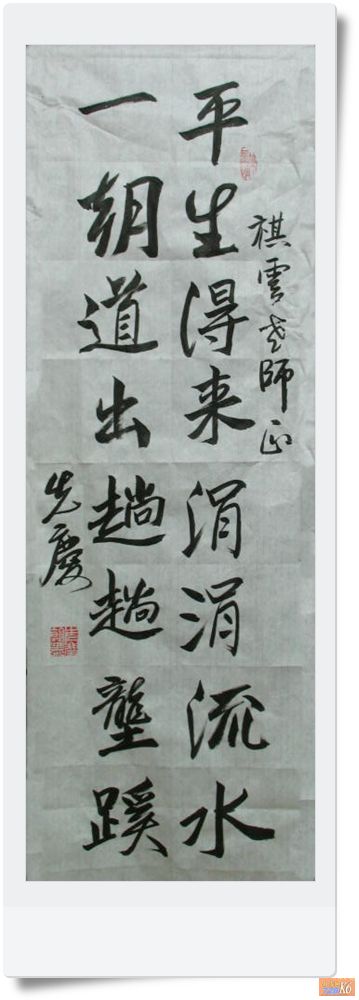 祺雲老师正
平生得来涓涓流水
一朝道出趟趟壟蹊
先慶